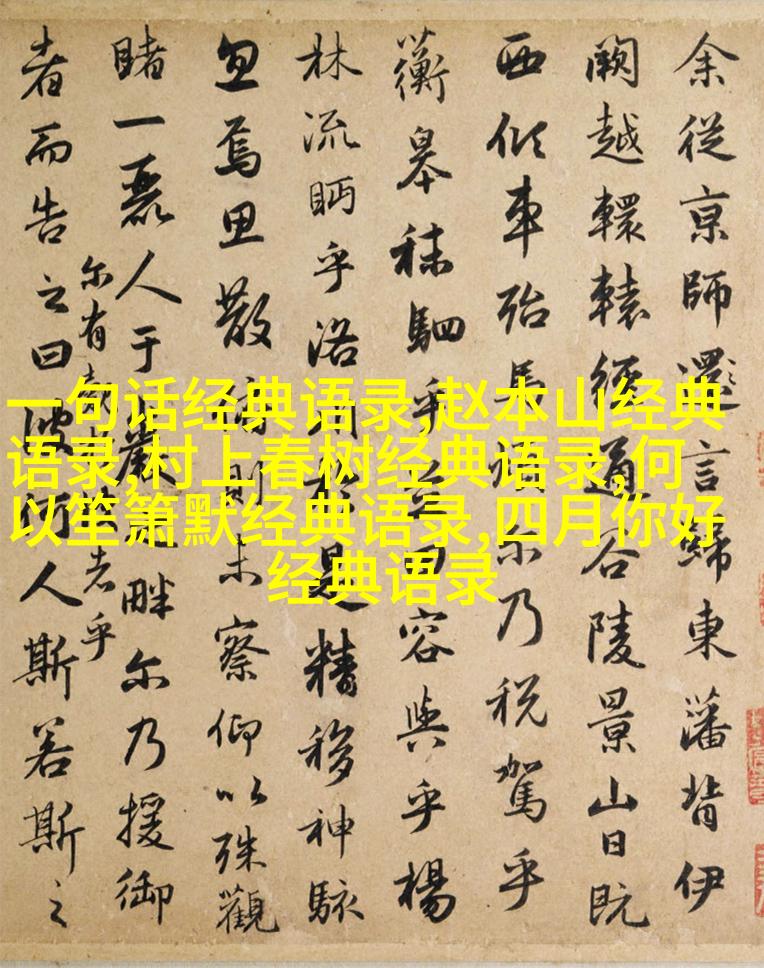 一句话经典语录,赵本山经典
语录,村上春树经典语录,何
以笙箫默经典语录,四月你好
经典语录
余從京師還言歸東藩背伊
闕越轘轅經通谷陵景山日既
西傾車殆馬煩尔乃税駕乎
蘅皋秣駟乎田容與乎楊
林流眄乎洛是精移神駭
忽焉思散則未察仰以殊觀
睹一麗人于巖畔尔乃援御
者而告之曰彼何人斯若斯之
尔有者乎